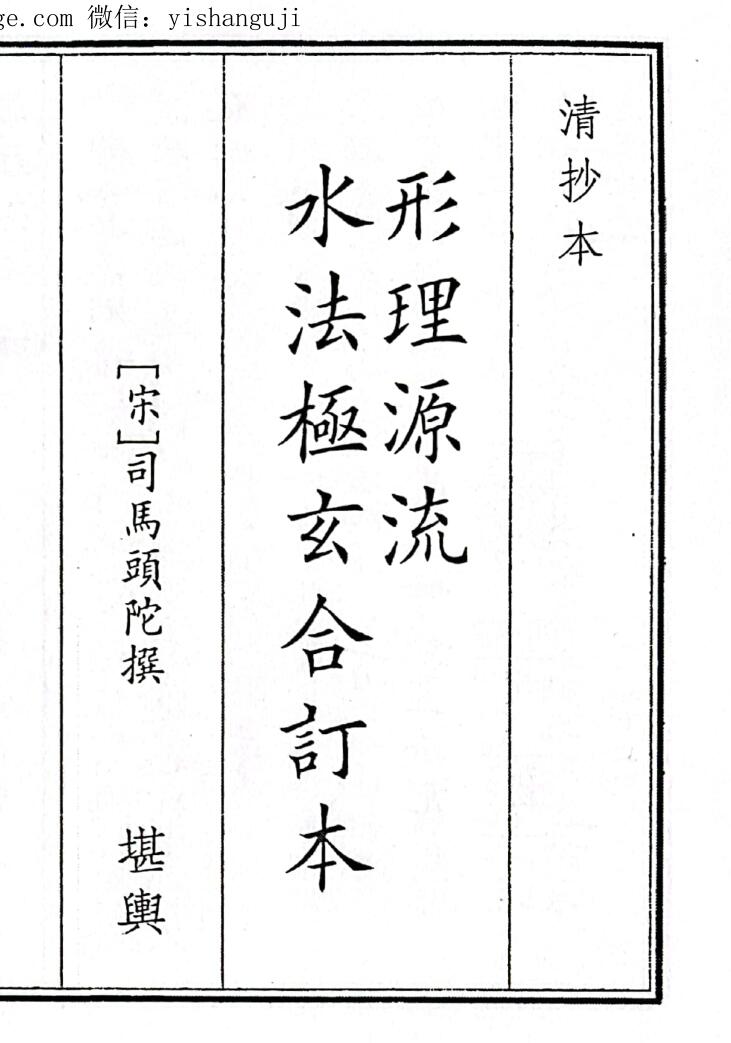 ge.com 微信：yishanguji
清抄本
形理源流
水法極玄合訂本
[宋]司馬頭陀撰
堪輿